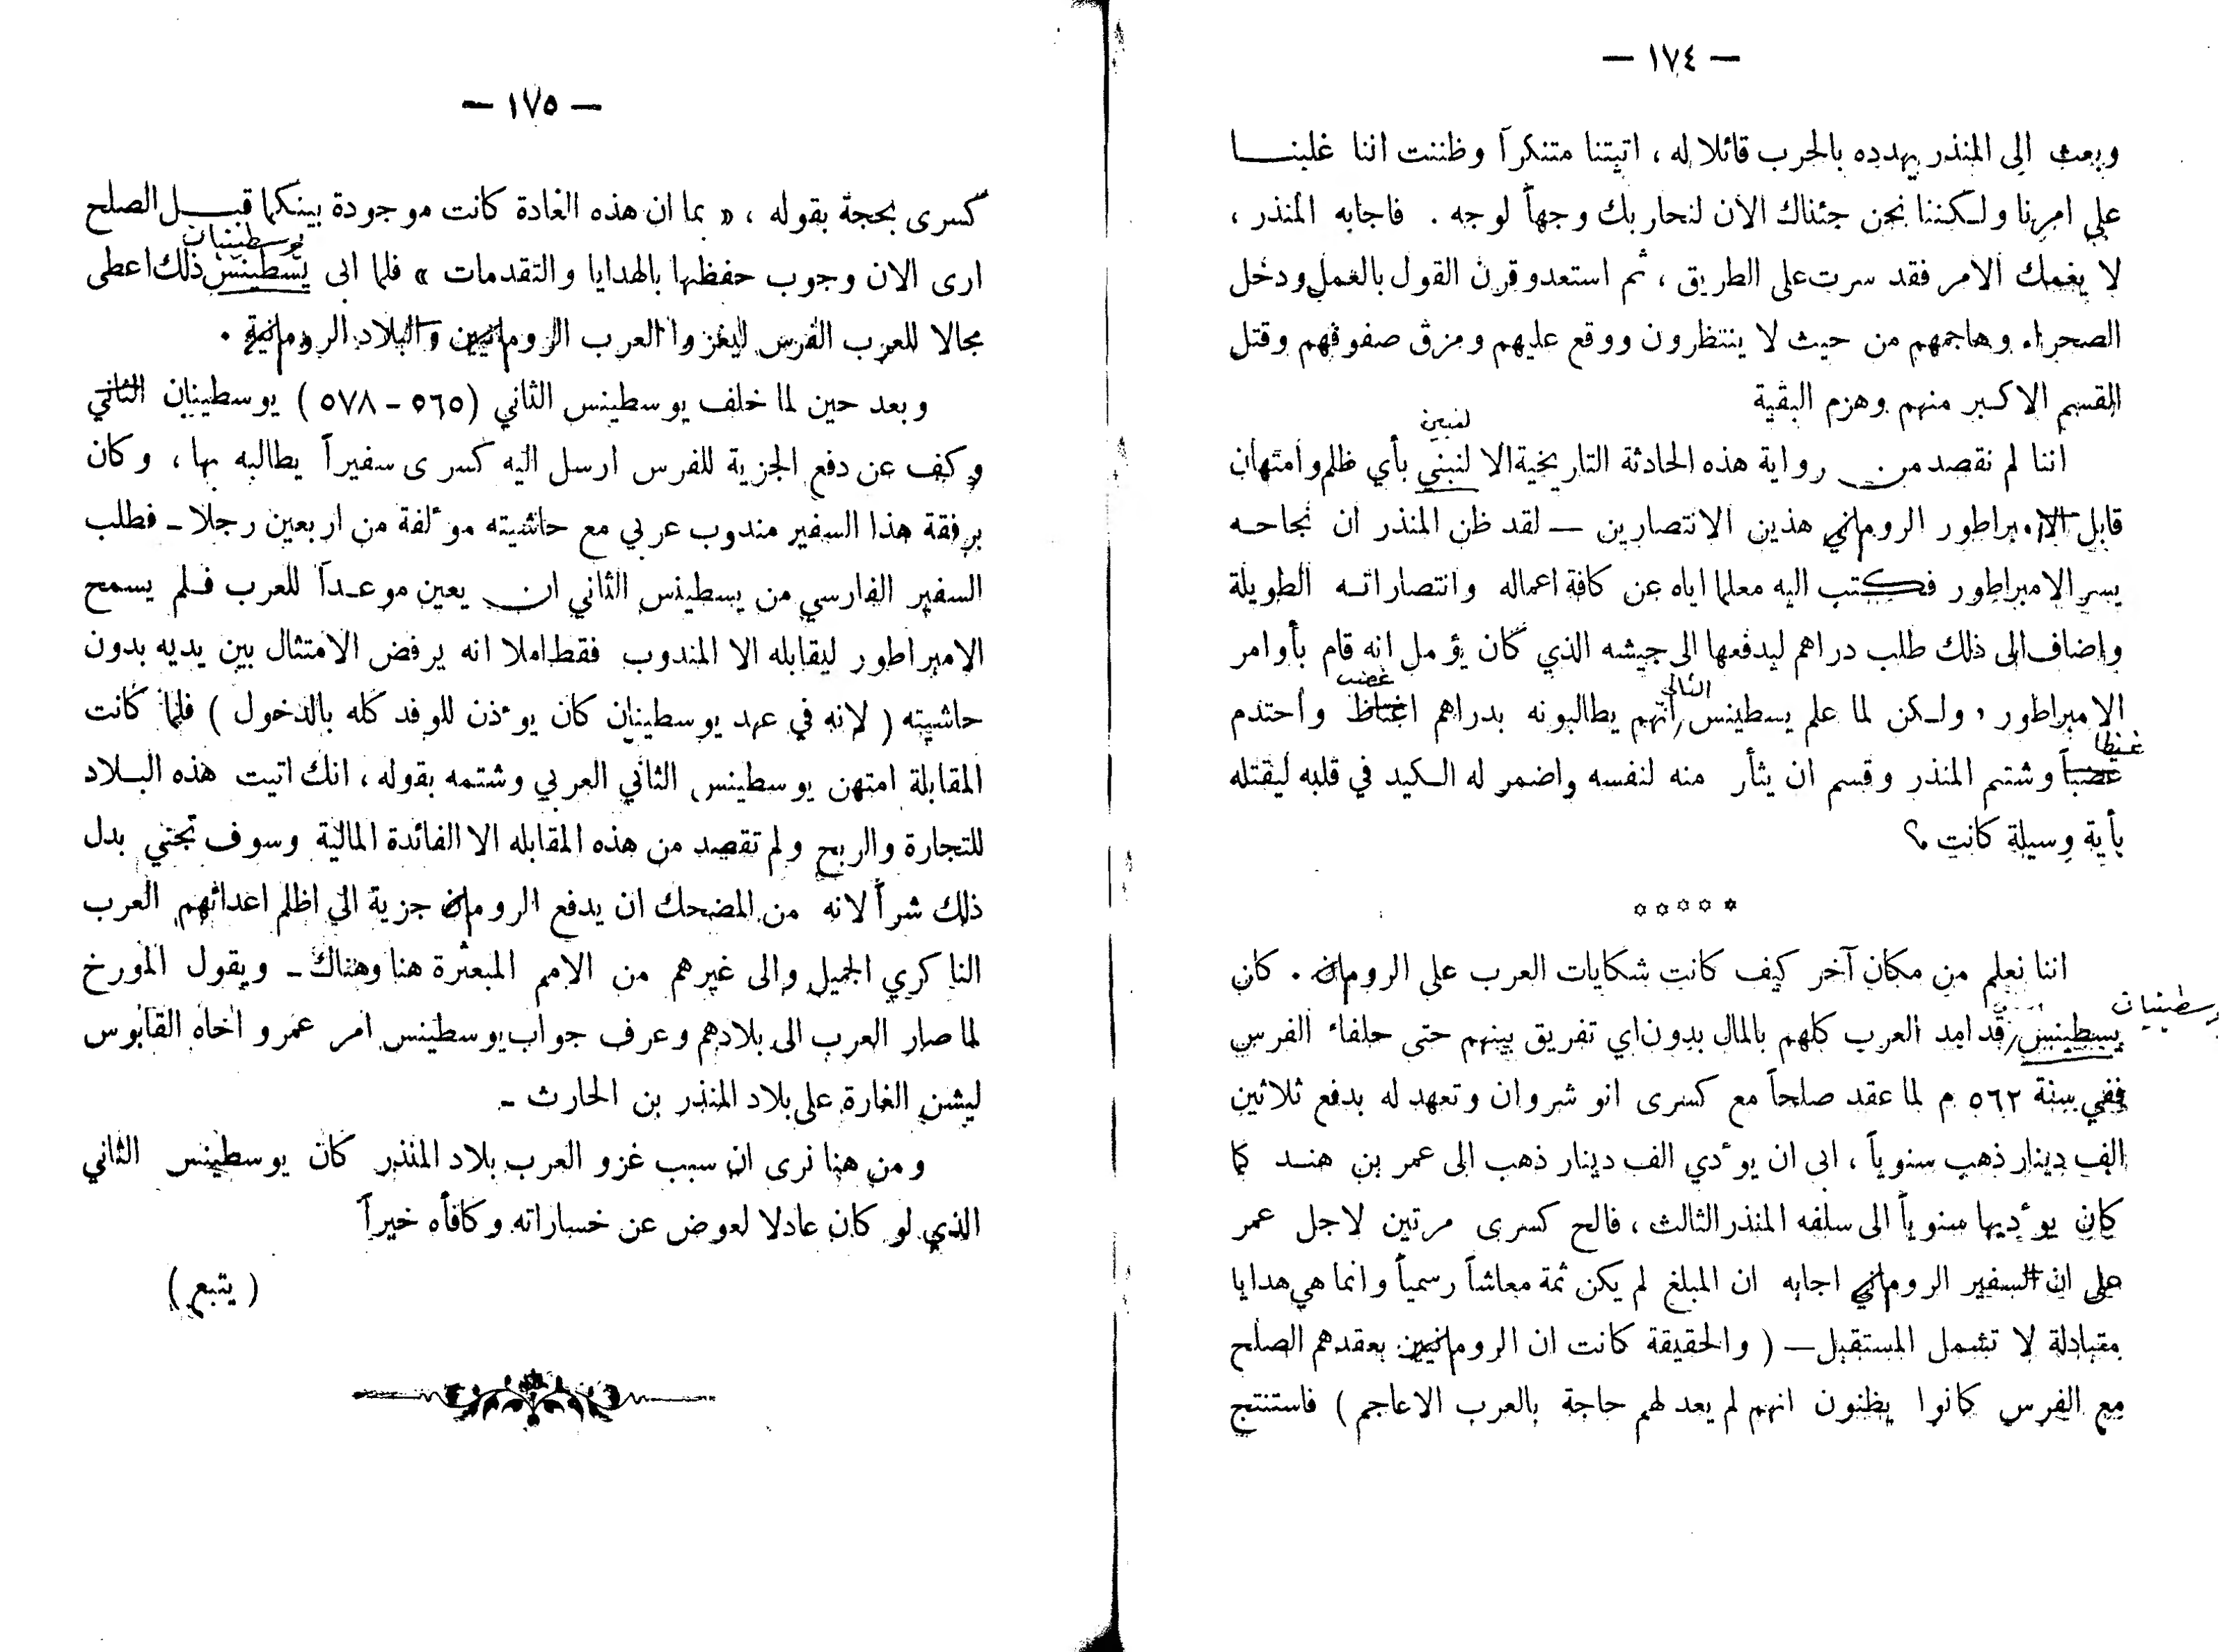 — ١٧٤ —
وبعث الى المنذر يهدده بالحرب قائلا له ، اتيتنا متنكراً وظننت اننا غلبنـــا
على امرنا ولـكننا نحن جئناك الان لنحاربك وجهاً لوجه . فاجابه المنذر ،
لا يغمك الامر فقد سرت على الطريق ، ثم استعدو قرن القول بالعمل ودخل
الصحراء وهاجمهم من حيث لا ينتظرون ووقع عليهم ومزق صفوفهم وقتل
القسم الاكـبر منهم وهزم البقية
لنبين
اننا لم نقصد من رواية هذه الحادثة التاريخية الا لنبني بأي ظلم وامتهان
قابل الامبراطور الروماني هذين الانتصارين — لقد ظن المنذر ان نجاحـه
يسر الامبراطور فكـتب اليه معلما اياه عن كافة اعماله وانتصاراتـه الطويلة
واضاف الى ذلك طلب دراهم ليدفعها الى جيشه الذي كان يؤمل انه قام بأوامر
الثاني غضب
الامبراطور ، ولـكن لما علم يسطينس انهم يطالبونه بدراهم اغتاظ واحتدم
غيظا
غضباً وشتم المنذر وقسم ان يثأر منه لنفسه واضمر له الـكيد في قلبه ليقتله
بأية وسيلة كانت ؟
* * * * *
اننا نعلم من مكان آخر كيف كانت شكايات العرب على الرومان . كان
وسطينيان
يسطينس قد امد العرب كلهم بالمال بدون اي تفريق بينهم حتى حلفاء الفرس
ففي سنة ٥٦٢ م لما عقد صلحاً مع كسرى انو شروان وتعهد له بدفع ثلاثين
الف دينار ذهب سنوياً ، ابى ان يوءدي الف دينار ذهب الى عمر بن هنـد كما
كان يوءديها سنوياً الى سلفه المنذر الثالث ، فالح كسرى مرتين لاجل عمر
على ان السفير الروماني اجابه ان المبلغ لم يكن ثمة معاشاً رسمياً وانما هي هدايا
متبادلة لا تشمل المستقبل — ( والحقيقة كانت ان الرومانيين بعقدهم الصلح
مع الفرس كانوا يظنون انهم لم يعد لهم حاجة بالعرب الاعاجم ) فاستنتج
— ١٧٥ —
كسرى بحجة بقوله ، « بما ان هذه العادة كانت موجودة بينكما قبـــل الصلح
يوسطينيان
ارى الان وجوب حفظها بالهدايا والتقدمات » فلما ابى يسطينس ذلك اعطى
مجالا للعرب الفرس ليغزوا العرب الرومانيين والبلاد الرومانية .
وبعد حين لما خلف يوسطينس الثاني ( ٥٦٥ - ٥٧٨ ) يوسطينيان الثاني
وكف عن دفع الجزية للفرس ارسل اليه كسرى سفيراً يطالبه بها ، وكان
برفقة هذا السفير مندوب عربي مع حاشيته موءلفة من اربعين رجلا - فطلب
السفير الفارسي من يسطينس الثاني ان يعين موعـداً للعرب فـلم يسمح
الامبراطور ليقابله الا المندوب فقط املا انه يرفض الامتثال بين يديه بدون
حاشيته ( لانه في عهد يوسطينيان كان يوءذن للوفد كله بالدخول ) فلما كانت
المقابلة امتهن يوسطينس الثاني العربي وشتمه بقوله ، انك اتيت هذه البـلاد
للتجارة والربح ولم تقصد من هذه المقابله الا الفائدة المالية وسوف تجني بدل
ذلك شراً لانه من المضحك ان يدفع الرومان جزية الى اظلم اعدائهم العرب
الناكري الجميل والى غيرهم من الامم المبعثرة هنا وهناك - ويقول المورخ
لما صار العرب الى بلادهم وعرف جواب يوسطينس امر عمرو اخاه القابوس
ليشن الغارة على بلاد المنذر بن الحارث -
ومن هنا نرى ان سبب غزو العرب بلاد المنذر كان يوسطينس الثاني
الذي لو كان عادلا لعوض عن خساراته وكافأه خيراً
( يتبع )